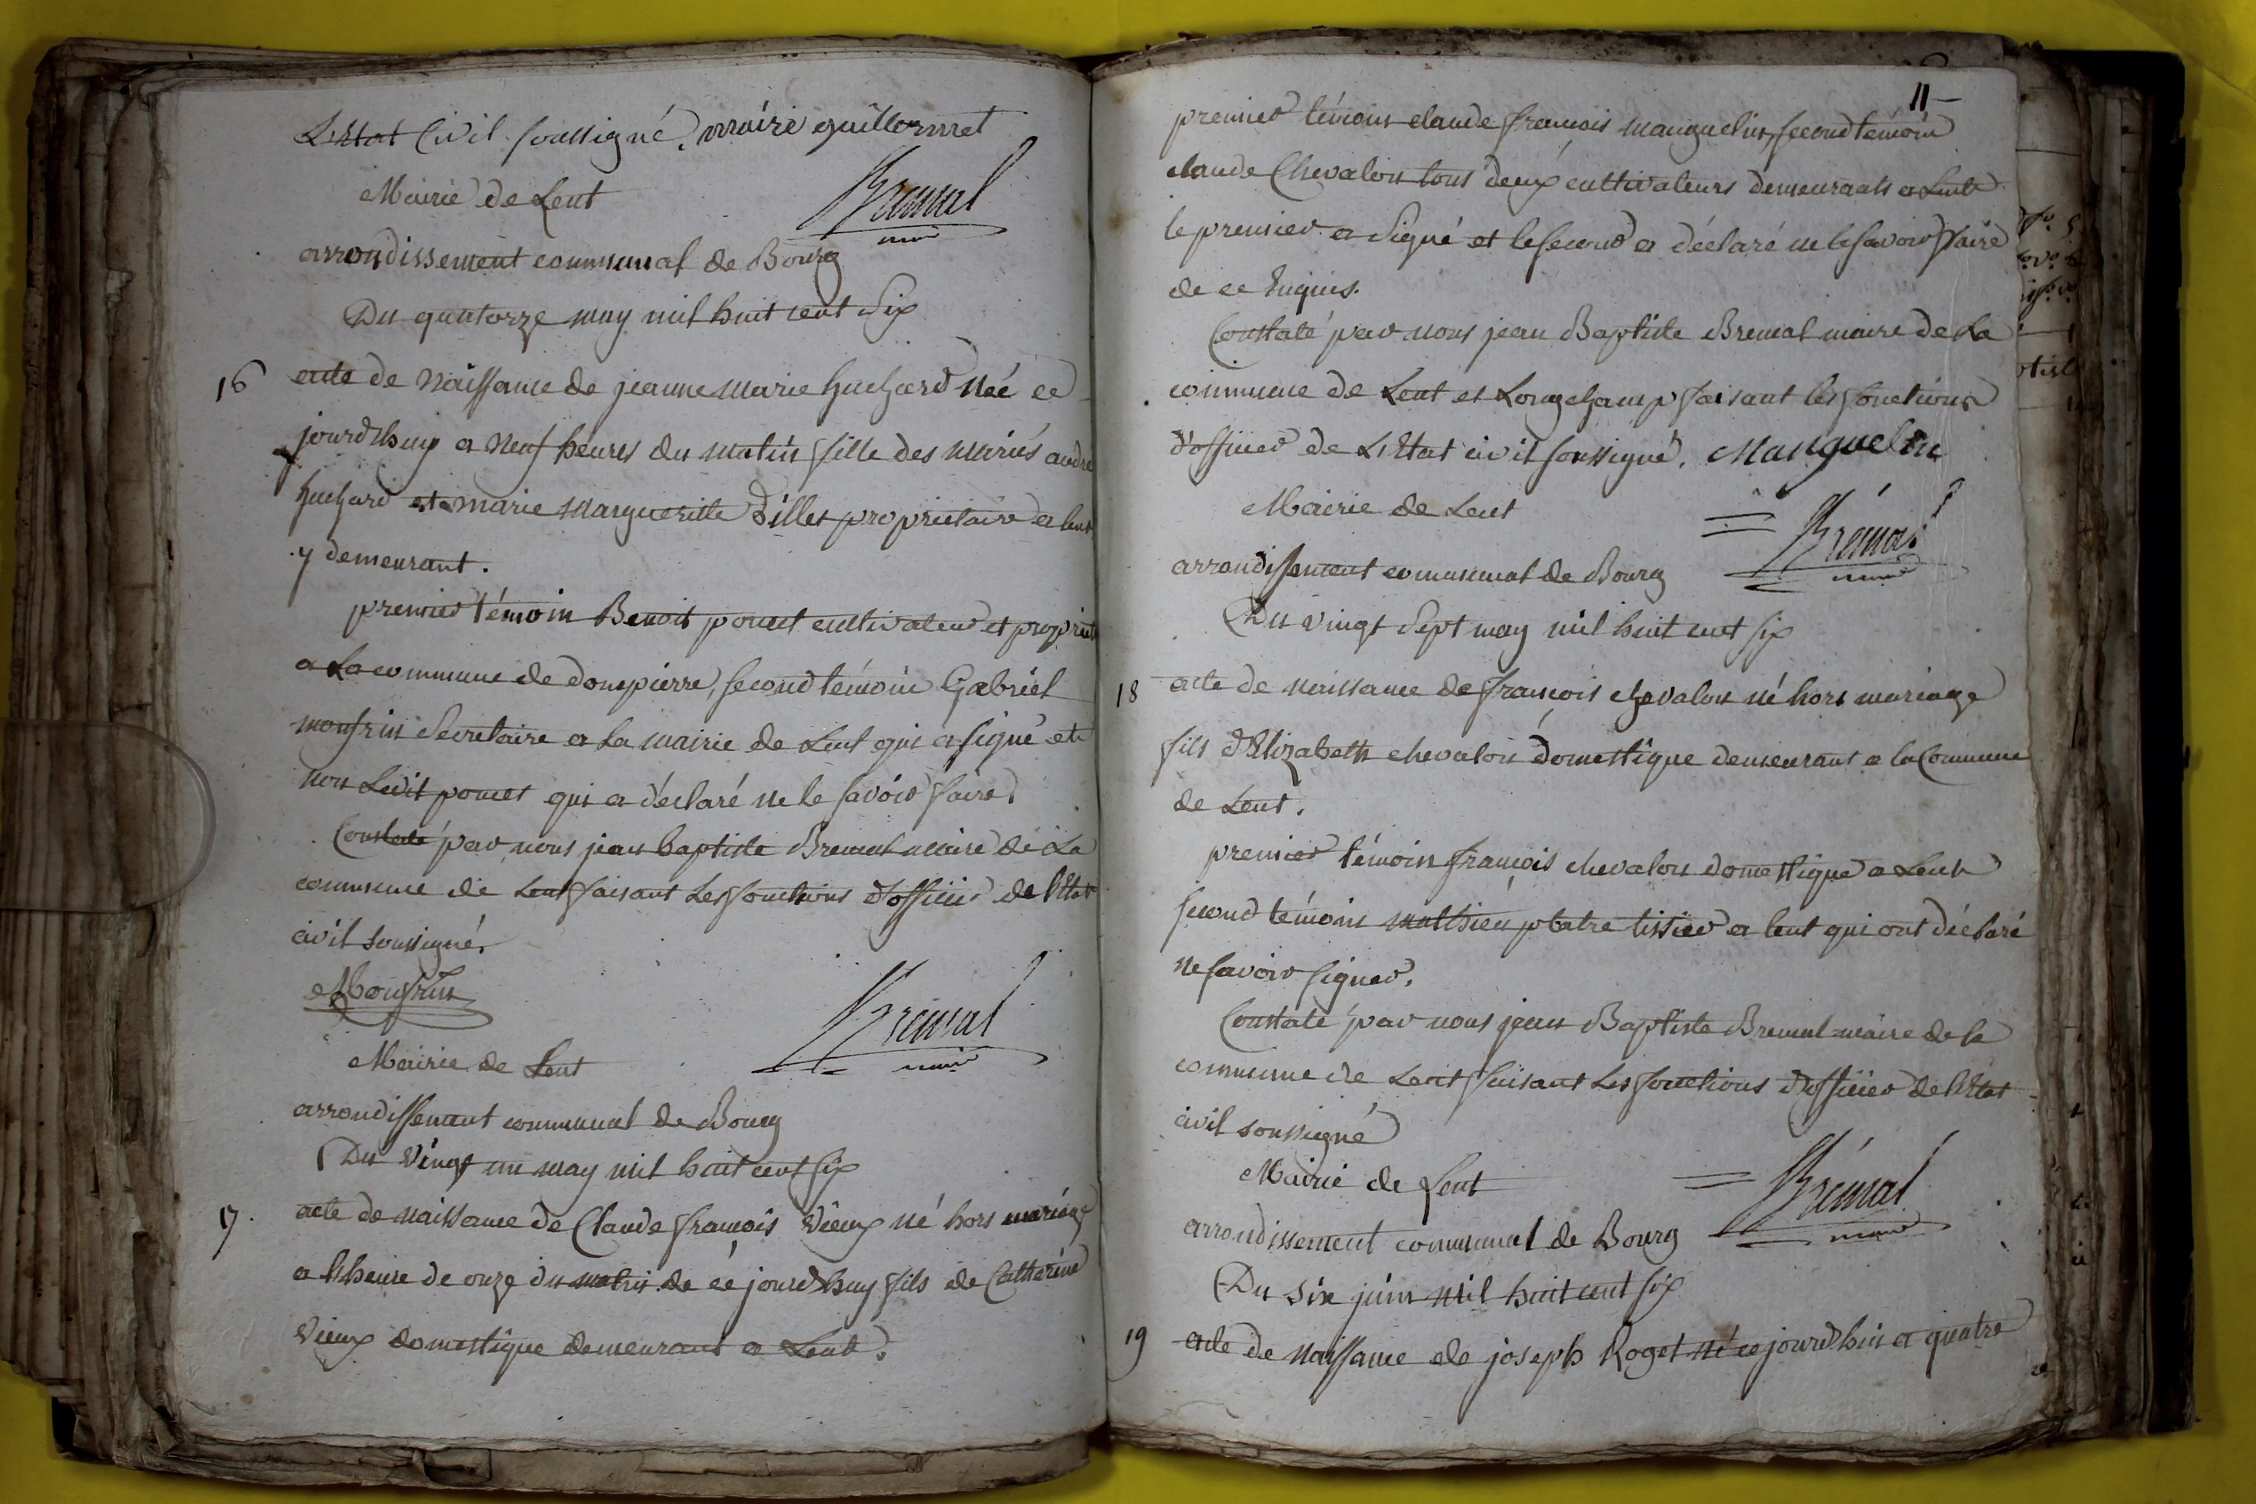 L'Etat Civil soussigné. maire guillermet
Mairie de Lent
Bremal
maire
arrondissement communal de Bourg
Du quatorze may mil huit cent Six
16 acte de Naissance de jeanne Marie huchard Née ce
jourd'huy a Neuf heures du Matin fille des Mariés andré
huchard et Marie Margueritte Dillet propriétaire a lent
y demeurant.
premier témoin Benoit poncet cultivateur et propriet
a La commune de dompierre, second témoin Gabriel
monfrin Secretaire a La mairie de Lent qui a signé et
non Ledit poncet qui a déclaré ne le savoir faire.
Constaté par nous jean baptiste Bremal maire de La
commune de Lent faisant Les fonctions d'officier de l'Etat
civil soussigné.
Monfrin
Bremal
maire
Mairie de Lent
arrondissement communal de Bourg
Du Vingt un may mil huit cent six
17. acte de naissance de Claude françois Vieux né hors mariage
a l'heure de onze du matin de ce jourd'huy fils de Catherine
Vieux domestique demeurant a Lent.
11
premier témoin claude françois Manguelin, second témoin
claude Chevalon tous deux cultivateurs demeurants a Lent
le premier a Signé et le second a déclaré ne le savoir faire
de ce Enquis.
Constaté par nous jean Baptiste Bremal maire de La
commune de Lent et Longchamp faisant les fonctions
d'officier de L'Etat civil soussigné. Manguelin
Mairie de Lent
Brémal
maire
arrondissement communal de Bourg
Du vingt Sept may mil huit cent six
18 acte de naissance de françois chevalon né hors mariage
fils d'Elizabeth chevalon domestique demeurant a la Commune
de Lent.
premier témoin françois chevalon domestique a Lent
second témoin mathieu platre tissier a lent qui ont déclaré
ne savoir signer.
Constaté par nous jean Baptiste Bremal maire de la
commune de Lent faisant Les fonctions d'officier de l'Etat
civil soussigné
Mairie de Lent
Brémal
maire
arrondissement communal de Bourg
Du six juin mil huit cent six
19 acte de Naissance de joseph Roget né ce jourd'hui a quatre